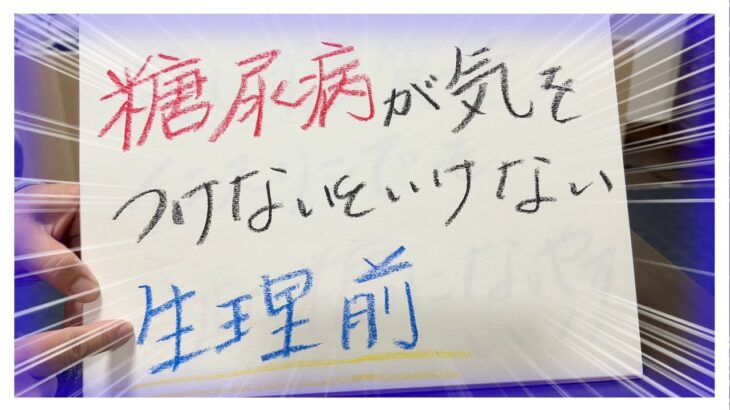 糖尿病が気を
つけないといけない
生理前